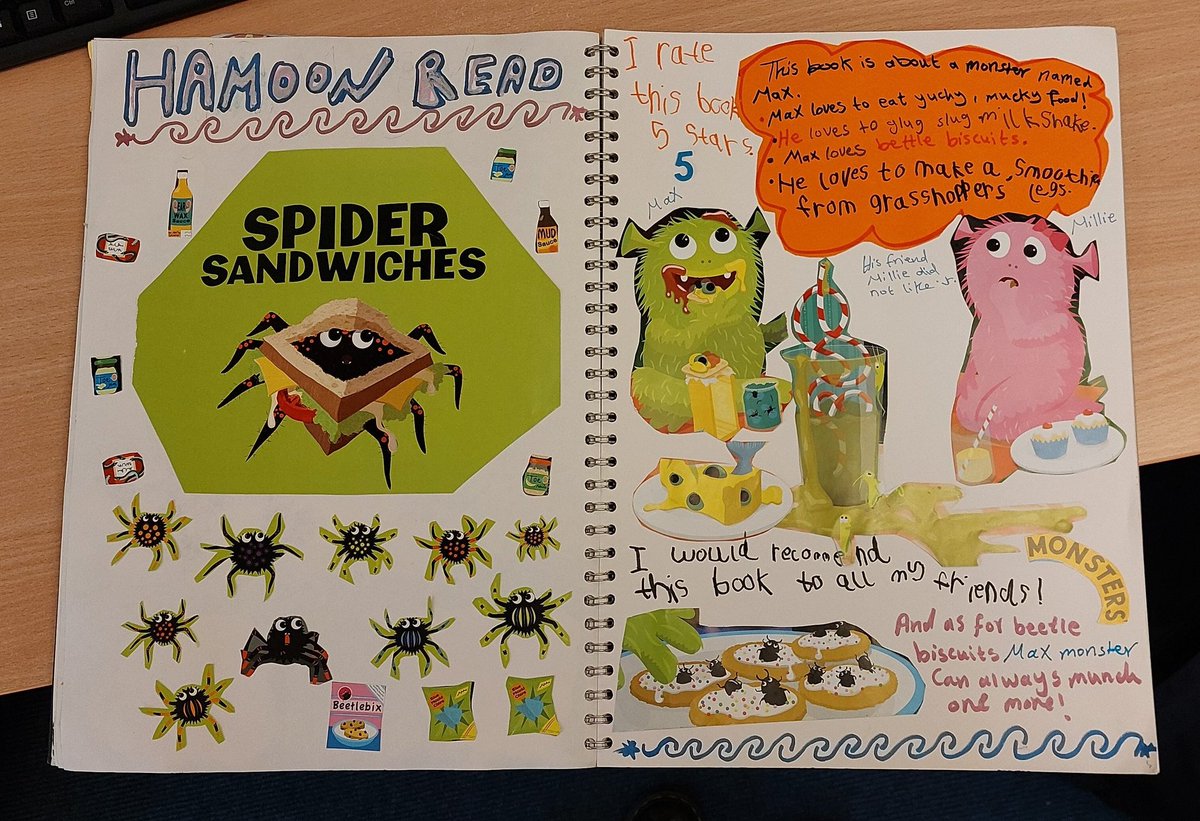 HAMOON READ
SPIDER
SANDWICHES
WAX
SAUCE
MUD
Sauce
Beetlebix
I rate
this book
5 stars.
5
This book is about a monster named
Max.
• Max loves to eat yucky, mucky food!
• He loves to glug slug milkshake.
• Max loves bettle biscuits.
• He loves to make a smoothie
from grasshoppers legs.
Max
Millie
His friend
Millie did
not like it.
I would recommend
this book to all my friends!
MONSTERS
And as for beetle
biscuits Max monster
Can always munch
one more!